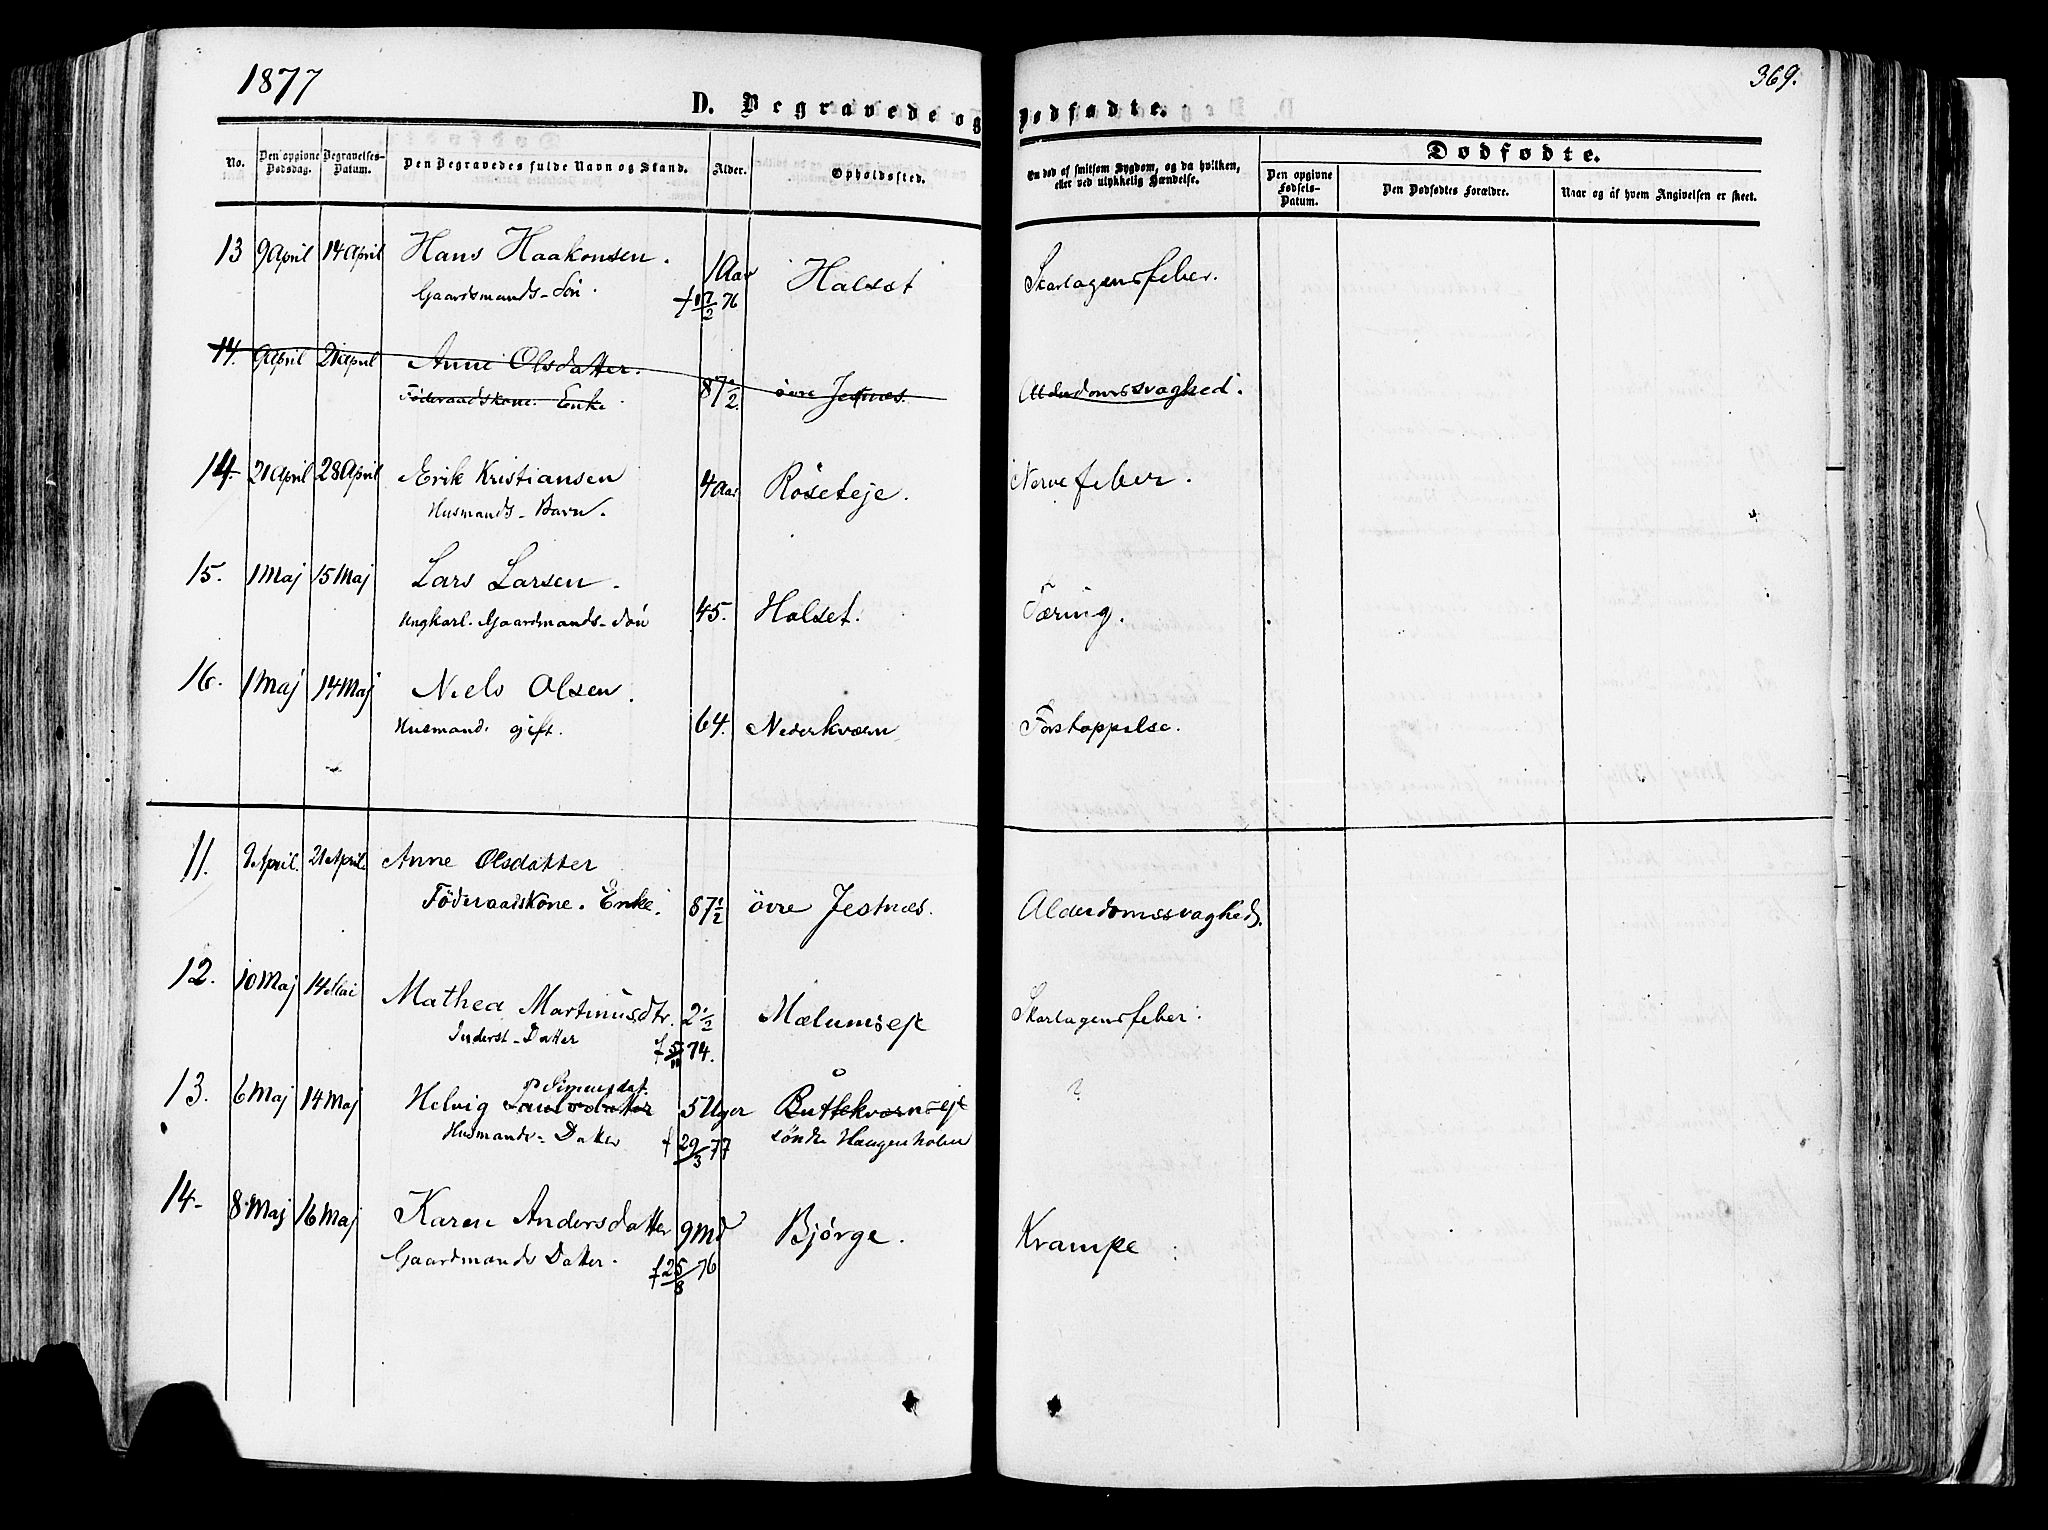 1877
369.
D. Begravede og Dødfødte.
No. Den opgivne Dødsdag. Begravelses-Datum. Den Begravedes fulde Navn og Stand. Alder. Opholdssted. Om død af smitsom Sygdom, og da hvilken, eller ved ulykkelig Hændelse. Dødfødte.
Den opgivne Fødsels-Datum. Den Dødfødtes Forældre. Naar og af hvem Angivelsen er skeet.
13 9 April 14 April Hans Haakonsen. 1 Aar Halset Skarlagensfeber.
Gaardmands-Søn. f 17/2 76
14. 9 April 21 April Anne Olsdatter. 87½ øvre Jesnes. Alderdomssvaghed.
Föderaadskone. Enke
14. 21 April 28 April Erik Kristiansen 4 Aar Röseteje. Nervefeber.
Husmands-Barn.
15. 1 Maj 15 Maj Lars Larsen. 45. Halset. Tæring.
Ungkarl. Gaardmands-Søn
16. 1 Maj 14 Maj Niels Olsen. 64. Nederkværn Forstoppelse.
Husmand. gift.
11. 9 April. 21 April. Anne Olsdatter 87½ øvre Jesnæs. Alderdomssvaghed.
Föderaadskone. Enke.
12. 10 Maj 14 Mai Mathea Martinusdtr. 2½ Mælumseje Skarlagensfeber.
Inderst-Datter f 5/11 74.
13. 6 Maj 14 Maj Helvig Simensdat. 5 Uger ?
Husmands-Datter f 29/3 77 söndre Haugenholen
14- 8 Maj 16 Maj Karen Andersdatter 9 Md Bjørge. Krampe
Gaardmands Datter. f 25/8 76